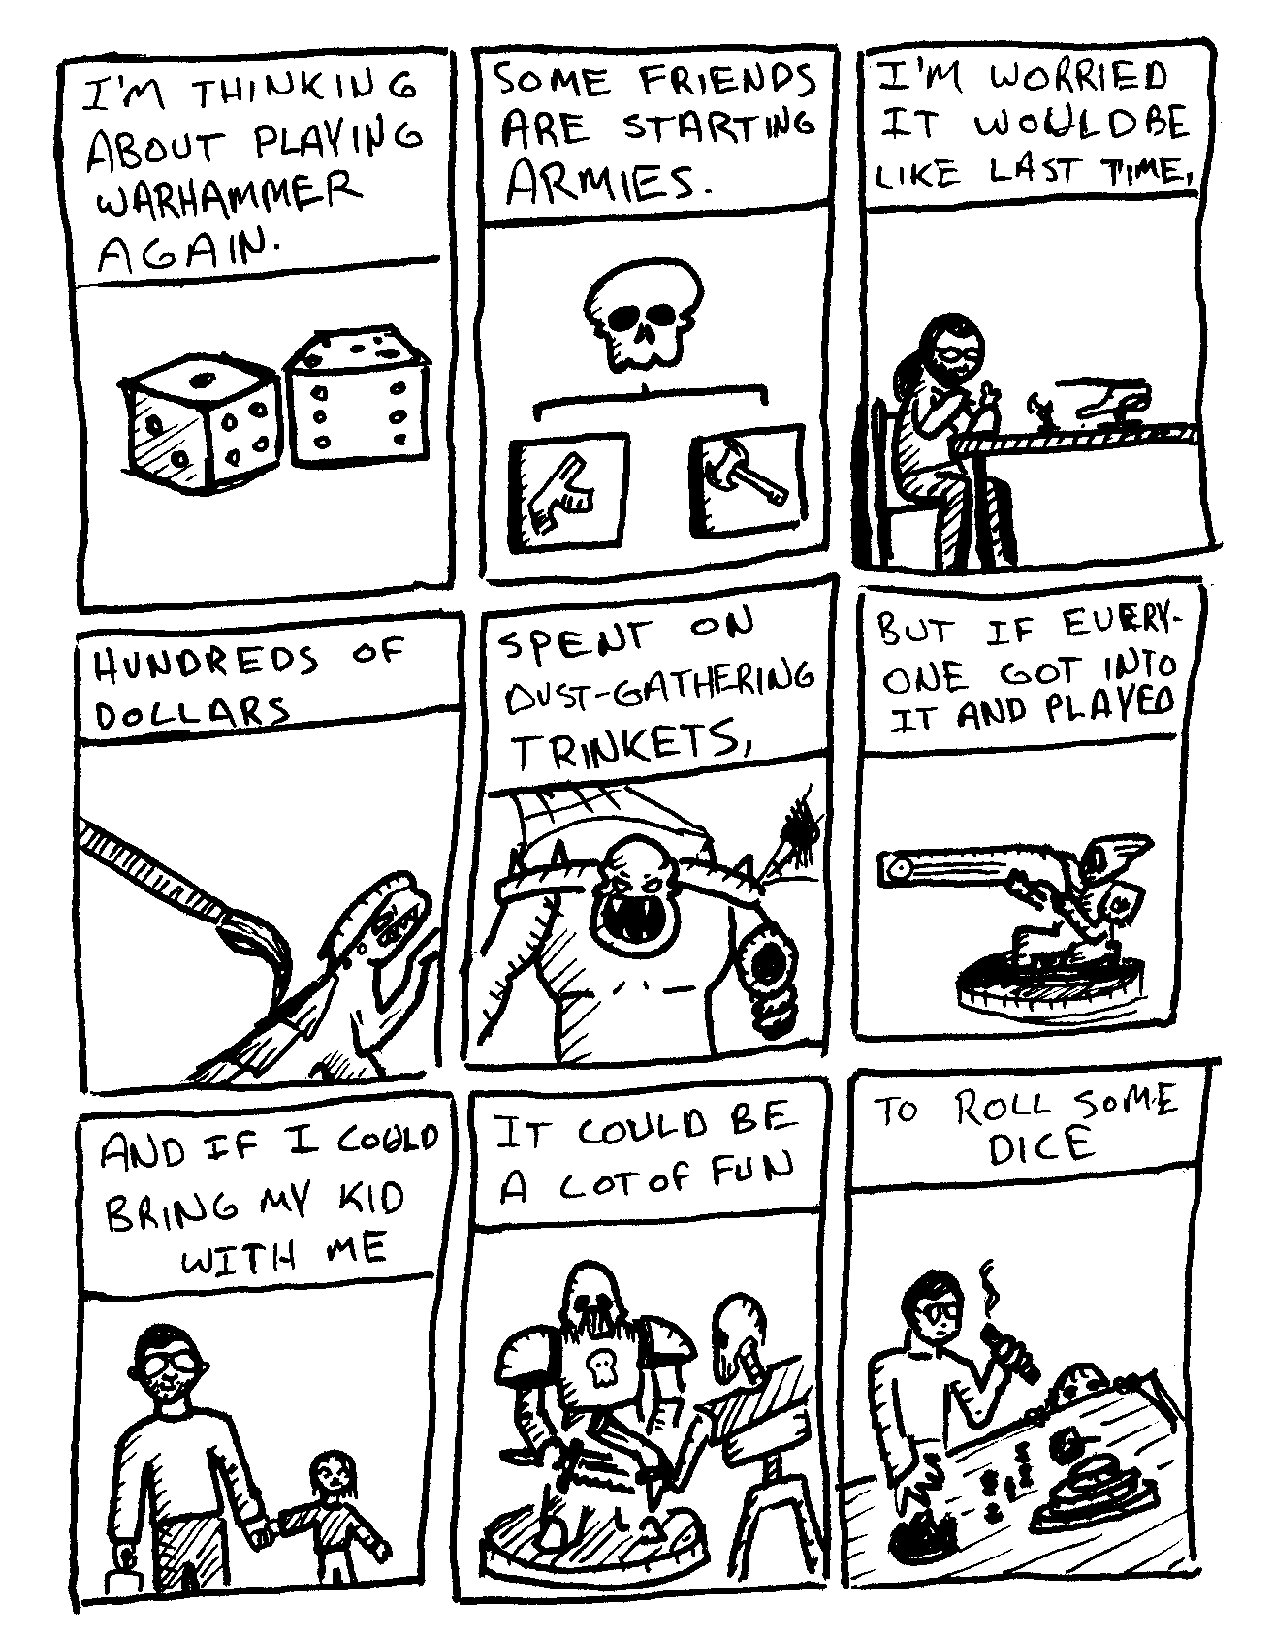 I'M THINKING
ABOUT PLAYING
WARHAMMER
AGAIN.
SOME FRIENDS
ARE STARTING
ARMIES.
I'M WORRIED
IT WOULD BE
LIKE LAST TIME,
HUNDREDS OF
DOLLARS
SPENT ON
DUST-GATHERING
TRINKETS,
BUT IF EVERY-
ONE GOT INTO
IT AND PLAYED
AND IF I COULD
BRING MY KID
WITH ME
IT COULD BE
A LOT OF FUN
TO ROLL SOME
DICE